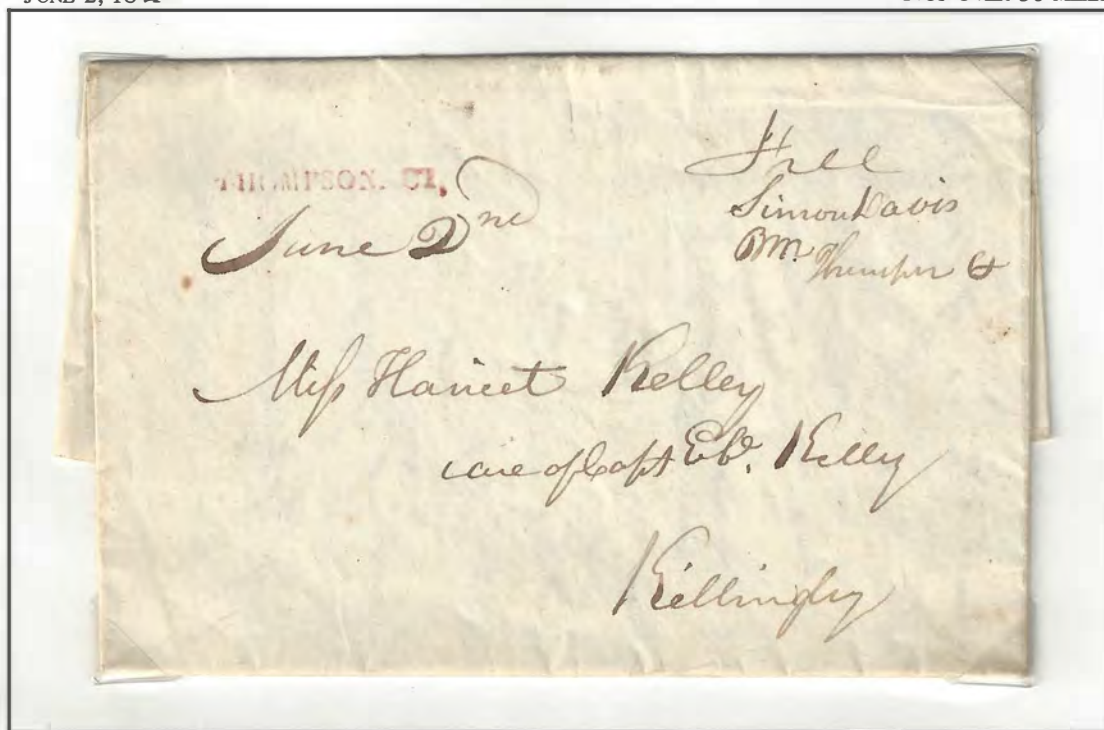 JUNE 2, 18
THOMPSON. CT,
June 2nd
Free
Simon Davis
PM. Thompson Ct
Miss Harriet Kelley
care of Capt Ebr. Kelly
Killingly